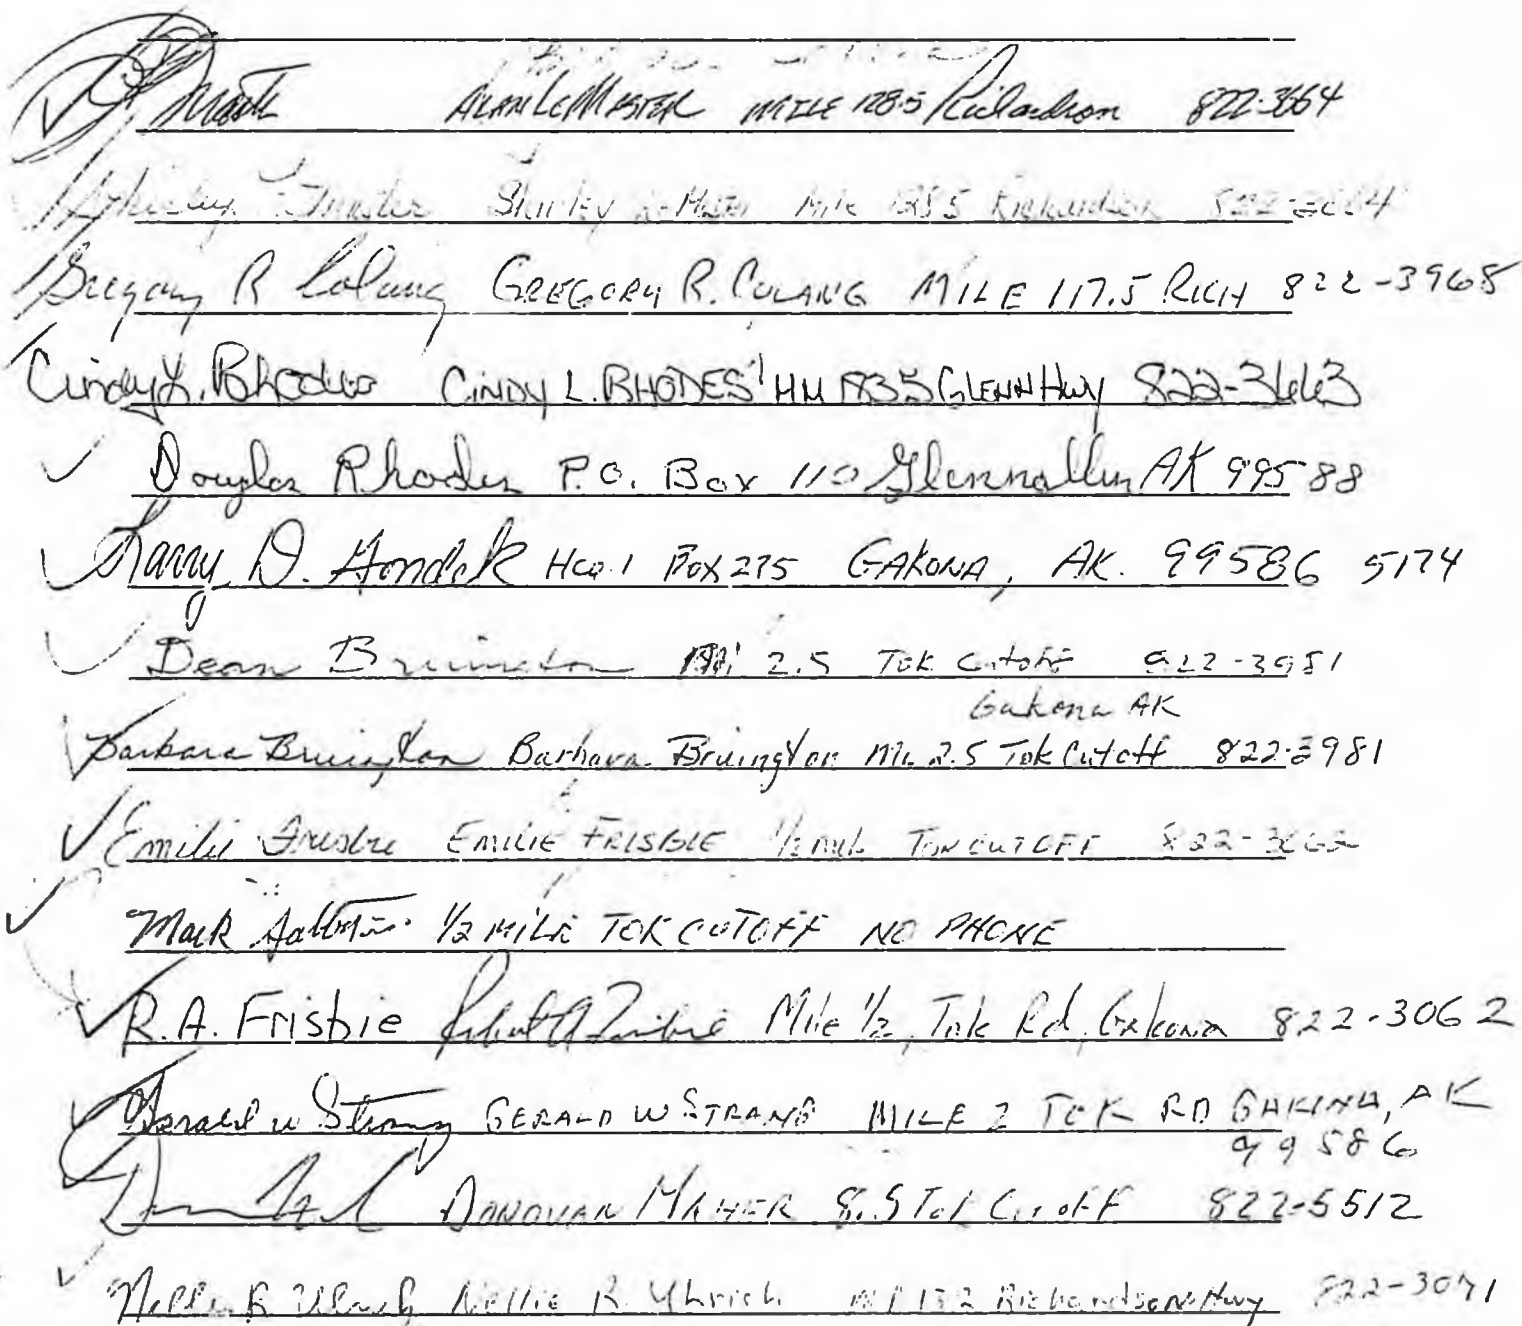 ALAN LEMASTER MILE 128.5 Richardson 822-3664
Shirley Richardson
Gregory R Colang GREGORY R. COLANG MILE 117.5 RICH 822-3968
Cindy L. Rhodes CINDY L. RHODES GLENN Hwy 822-3663
Douglas Rhodes P.O. Box 110 Glennallen AK 99588
Larry D. Hondek Box 275 GAKONA, AK. 99586 5174
Dean Bruington 2.5 Tok Cutoff
Gakona AK
Barbara Bruington Barbara Bruington Mi. 2.5 Tok Cutoff 822-3981
Emilie Frisbie EMILIE FRISBIE 1/2 TOK CUTOFF
Mark 1/2 MILE TOK CUTOFF NO PHONE
R.A. Frisbie Robert A Frisbie Mile 1/2, Tok Rd, Gakona 822-3062
Gerald W Strang GERALD W STRANG MILE 2 TOK RD GAKONA, AK
99586
DONOVAN MAHER 8.5 Tok CutoFF 822-5512
Nellie R. Nellie R. Richardson Hwy 822-3071